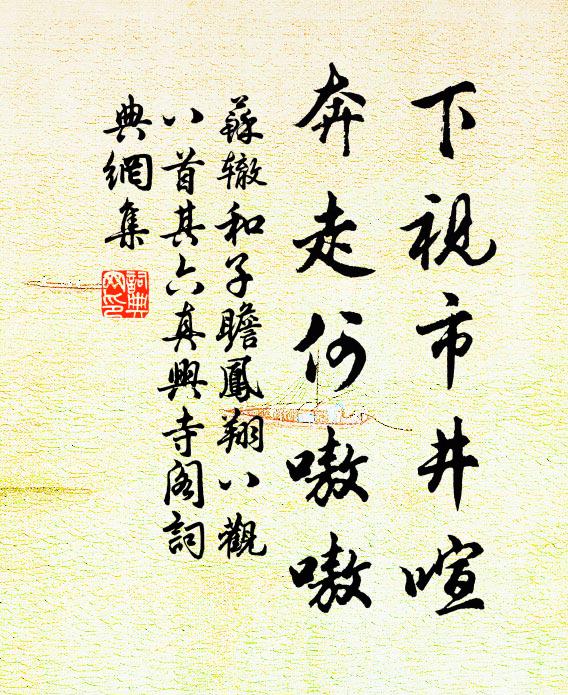 下視市井喧
奔走何嗷嗷
蘇轍和子瞻鳳翔八觀
八首其六真興寺閣詞
典網集
詞典
网印